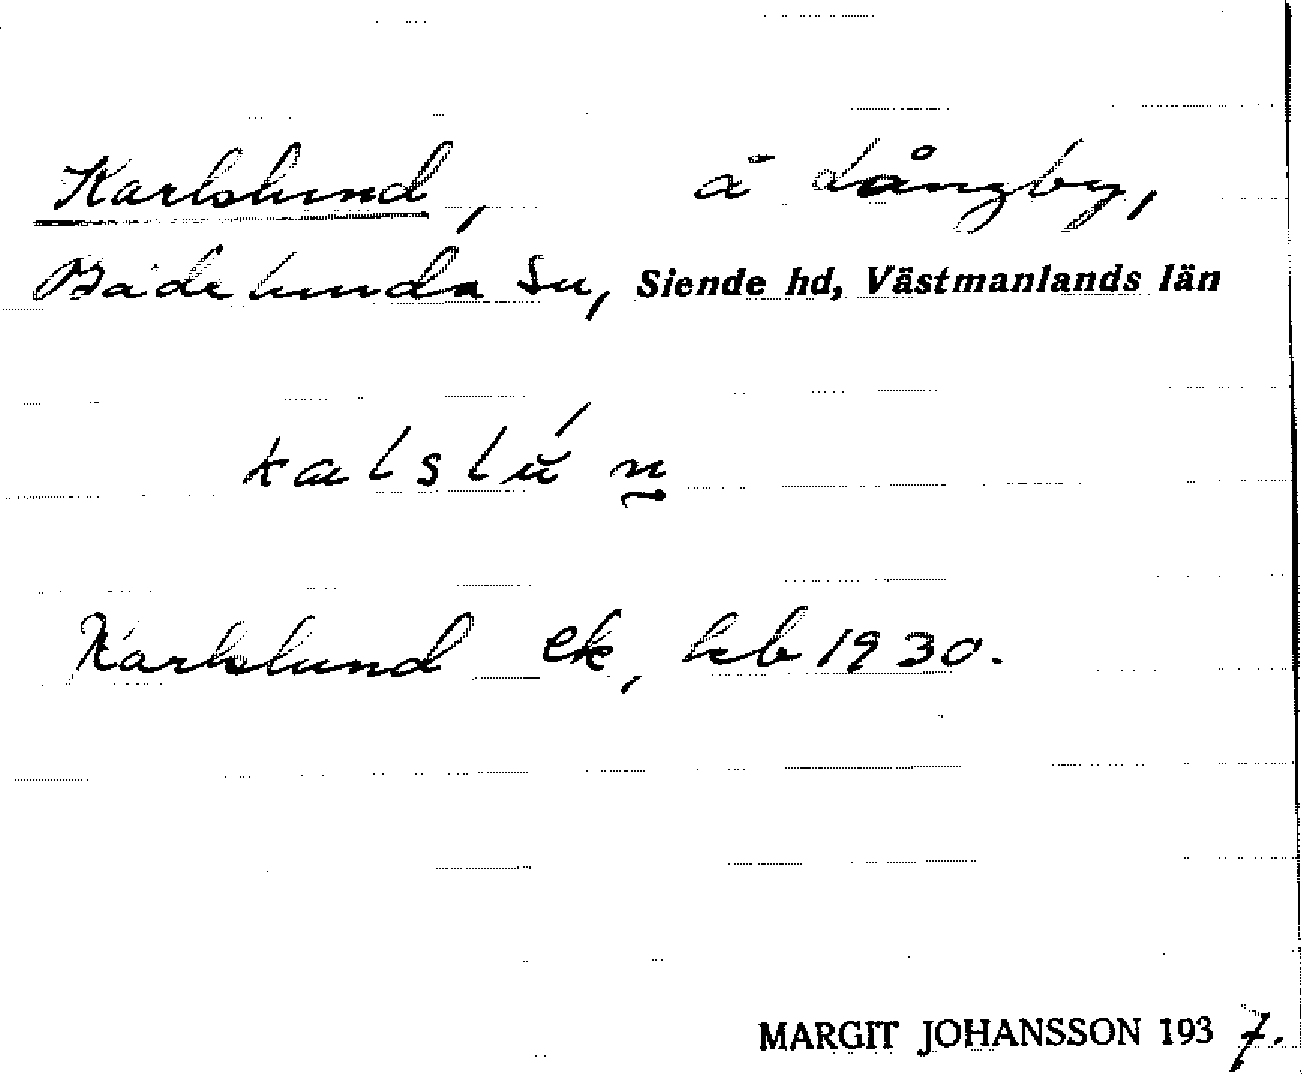 Karlslund, å Långby,
Badelunda sn, Siende hd, Västmanlands län
kalslú n
Karlslund ek, kb 1930.
MARGIT JOHANSSON 1937.